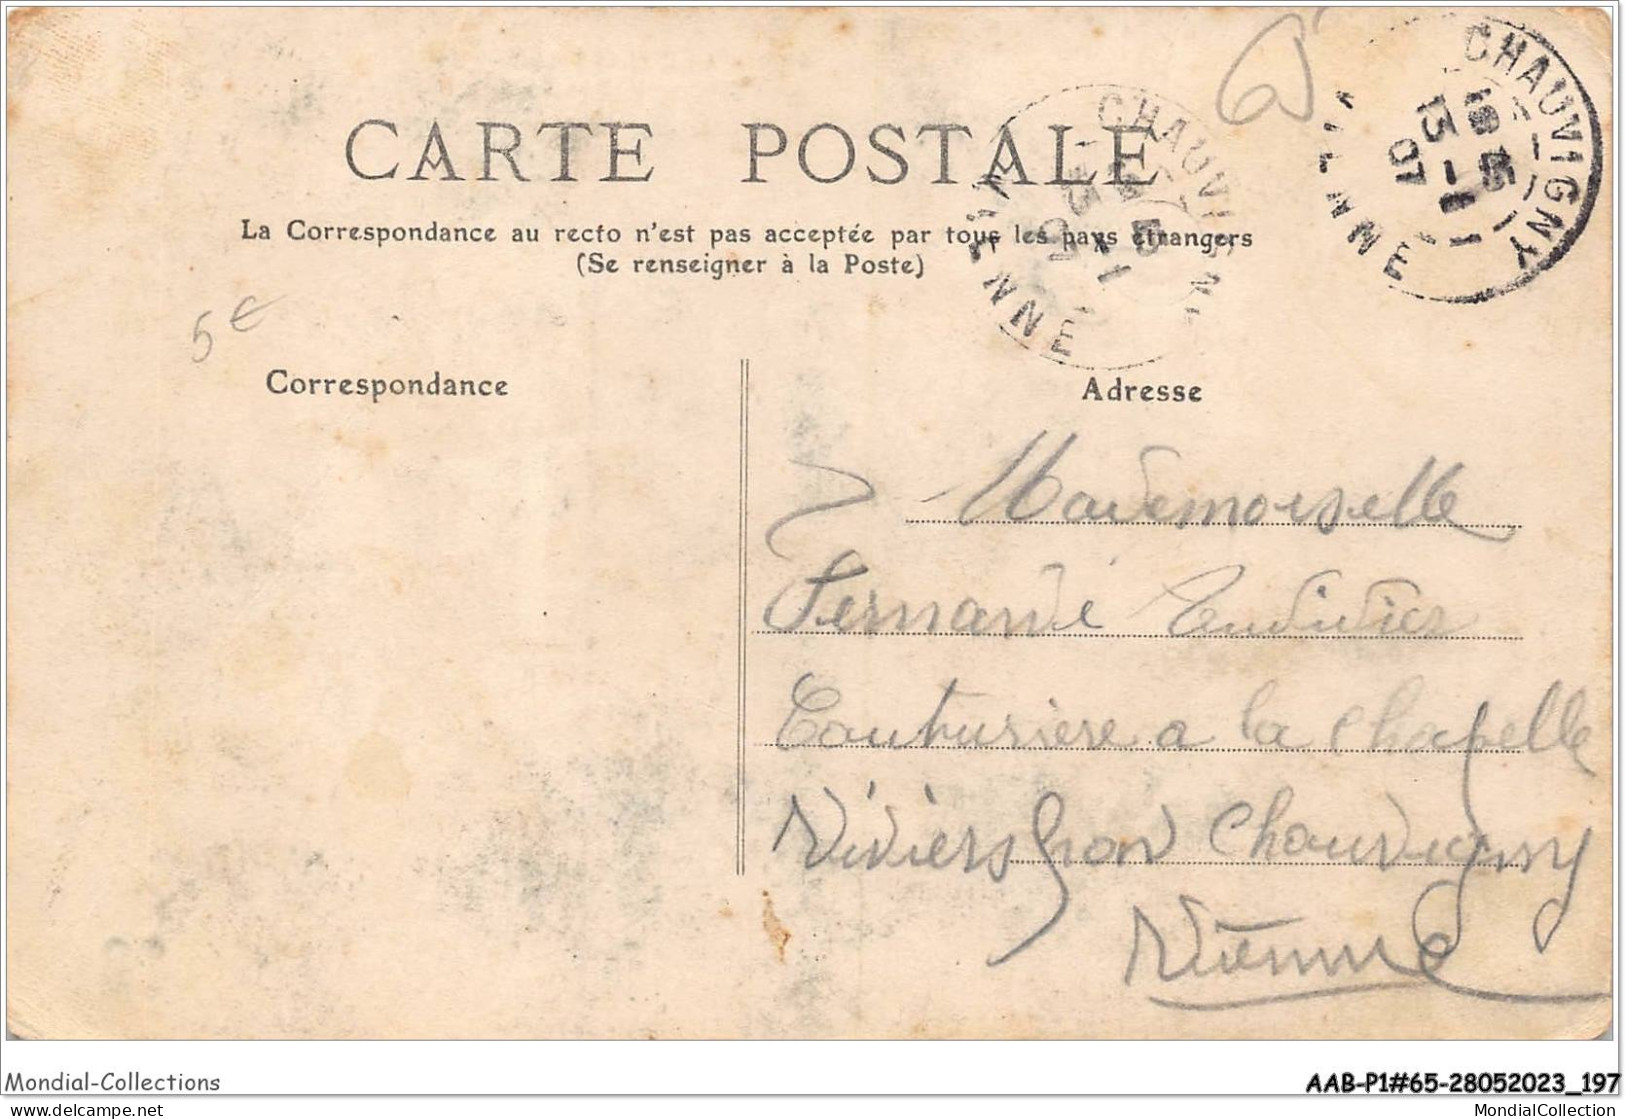 CARTE POSTALE
La Correspondance au recto n'est pas acceptée par tous les pays étrangers
(Se renseigner à la Poste)
CHAUVIGNY
18 15
13 - 1
07
VIENNE
CHAUVIGNY
13 - 1
07
VIENNE
5 €
Correspondance
Adresse
Mademoiselle
Fernande
Couturiere a la chapelle
Viviers par Chauvigny
Vienne
Mondial-Collections
AAB-P1#65-28052023_197
www.delcampe.net
MondialCollection